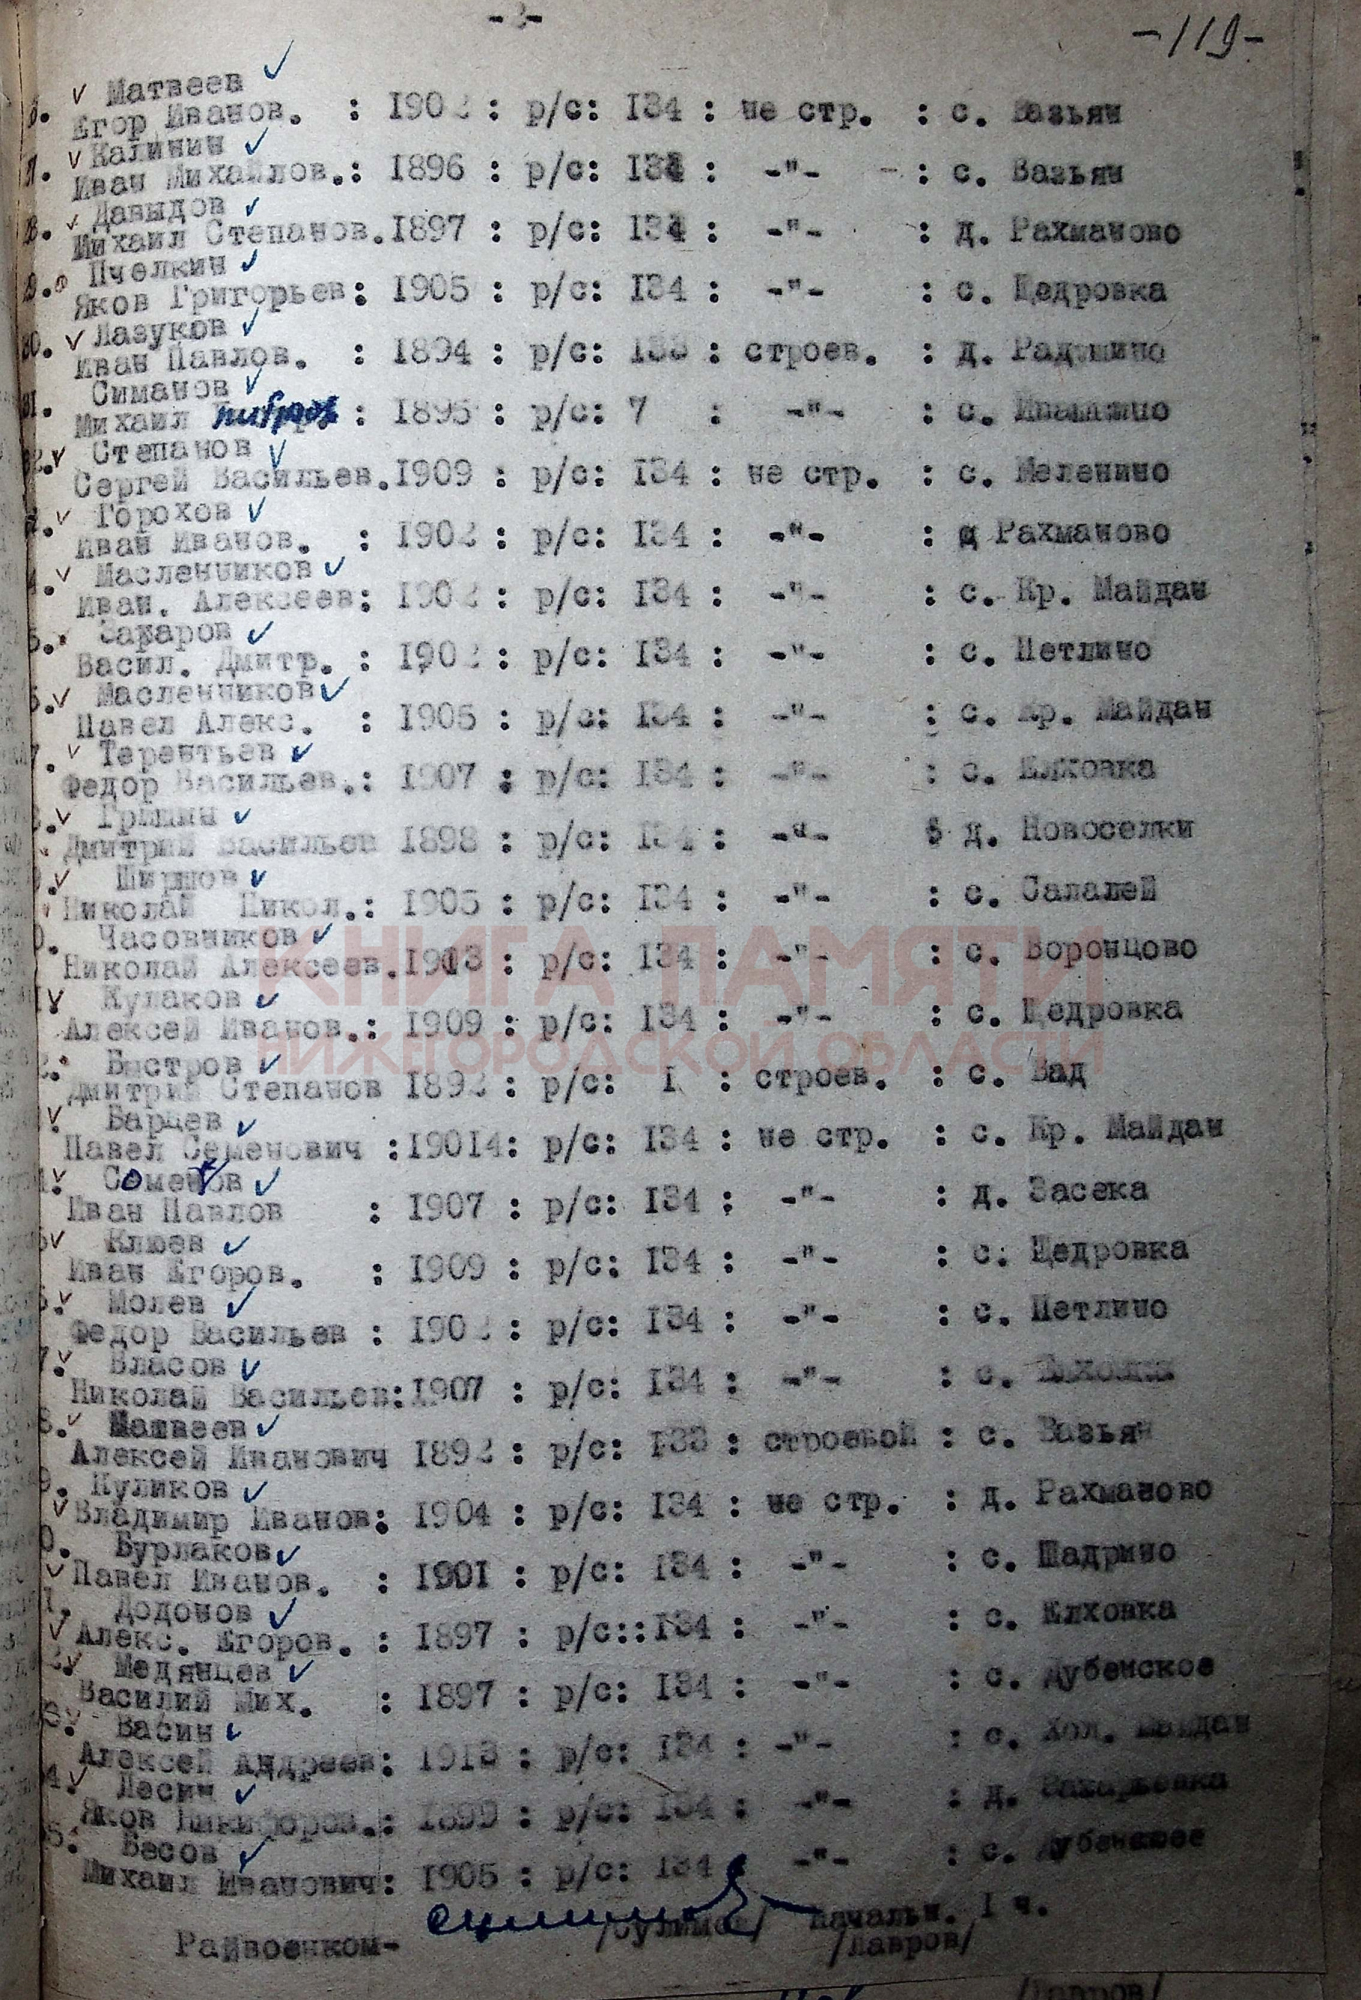 -119-
Матвеев
Егор Иванов. : 1902 : р/с: 134 : не стр. : с. Вазьян
Калинин
Иван Михайлов.: 1896 : р/с: 134 : -"- : с. Вазьян
Давыдов
Михаил Степанов. 1897 : р/с: 134 : -"- : д. Рахманово
Пчелкин
Яков Григорьев: 1905 : р/с: 134 : -"- : с. Щедровка
30. Лазуков
Иван Павлов. : 1894 : р/с: 133 : строев. : д. Радушино
31. Симанов
Михаил : 1895 : р/с: 7 : -"- : с.
32. Степанов
Сергей Васильев. 1909 : р/с: 134 : не стр. : с. Меленино
Горохов
Иван Иванов. : 1902 : р/с: 134 : -"- : д Рахманово
4. Масленников
Иван. Алексеев: 1902 : р/с: 134 : -"- : с. Кр. Майдан
5. Захаров
Васил. Дмитр. : 1902 : р/с: 134 : -"- : с. Петлино
6. Масленников
Павел Алекс. : 1905 : р/с: 134 : -"- : с. Кр. Майдан
7. Терентьев
Федор Васильев.: 1907 : р/с: 134 : -"- : с. Елховка
Гришин
Дмитрий Васильев 1898 : р/с: 134 : -"- : д. Новоселки
Ширшов
Николай Никол.: 1905 : р/с: 134 : -"- : с. Салалей
0. Часовников
Николай Алексеев. 1913 : р/с: 134 : -"- : с. Воронцово
КНИГА ПАМЯТИ
Кулаков
Алексей Иванов.: 1909 : р/с: 134 : -"- : с. Щедровка
НИЖЕГОРОДСКОЙ ОБЛАСТИ
2. Быстров
Дмитрий Степанов 1892 : р/с: 1 : строев. : с. Вад
Барцев
Павел Семенович :19014: р/с: 134 : не стр. : с. Кр. Майдан
Сомов
Иван Павлов : 1907 : р/с: 134 : -"- : д. Засека
Клюев
Иван Егоров. : 1909 : р/с: 134 : -"- : с. Щедровка
6. Молев
Федор Васильев : 1902 : р/с: 134 : -"- : с. Петлино
7. Власов
Николай Васильев: 1907 : р/с: 134 : -"- : с.
8. Матвеев
Алексей Иванович 1892 : р/с: 133 : строевой : с. Вазьян
9. Куликов
Владимир Иванов: 1904 : р/с: 134 : не стр. : д. Рахманово
0. Бурлаков
Павел Иванов. : 1901 : р/с: 134 : -"- : с. Шадрино
1. Додонов
Алекс. Егоров. : 1897 : р/с::134 : -"- : с. Елховка
2. Медянцев
Василий Мих. : 1897 : р/с: 134 : -"- : с. Дубенское
3. Васин
Алексей Андреев: 1913 : р/с: 134 : -"- : с. Хол. Майдан
4. Лесин
Яков Никифоров.: 1899 : р/с: 134 : -"- : д. Захарьевка
5. Весов
Михаил Иванович: 1905 : р/с: 134 : -"- : с. Дубенское
Райвоенком- /Сулимов/ Начальн. 1 ч.
/Лавров/
/Лавров/